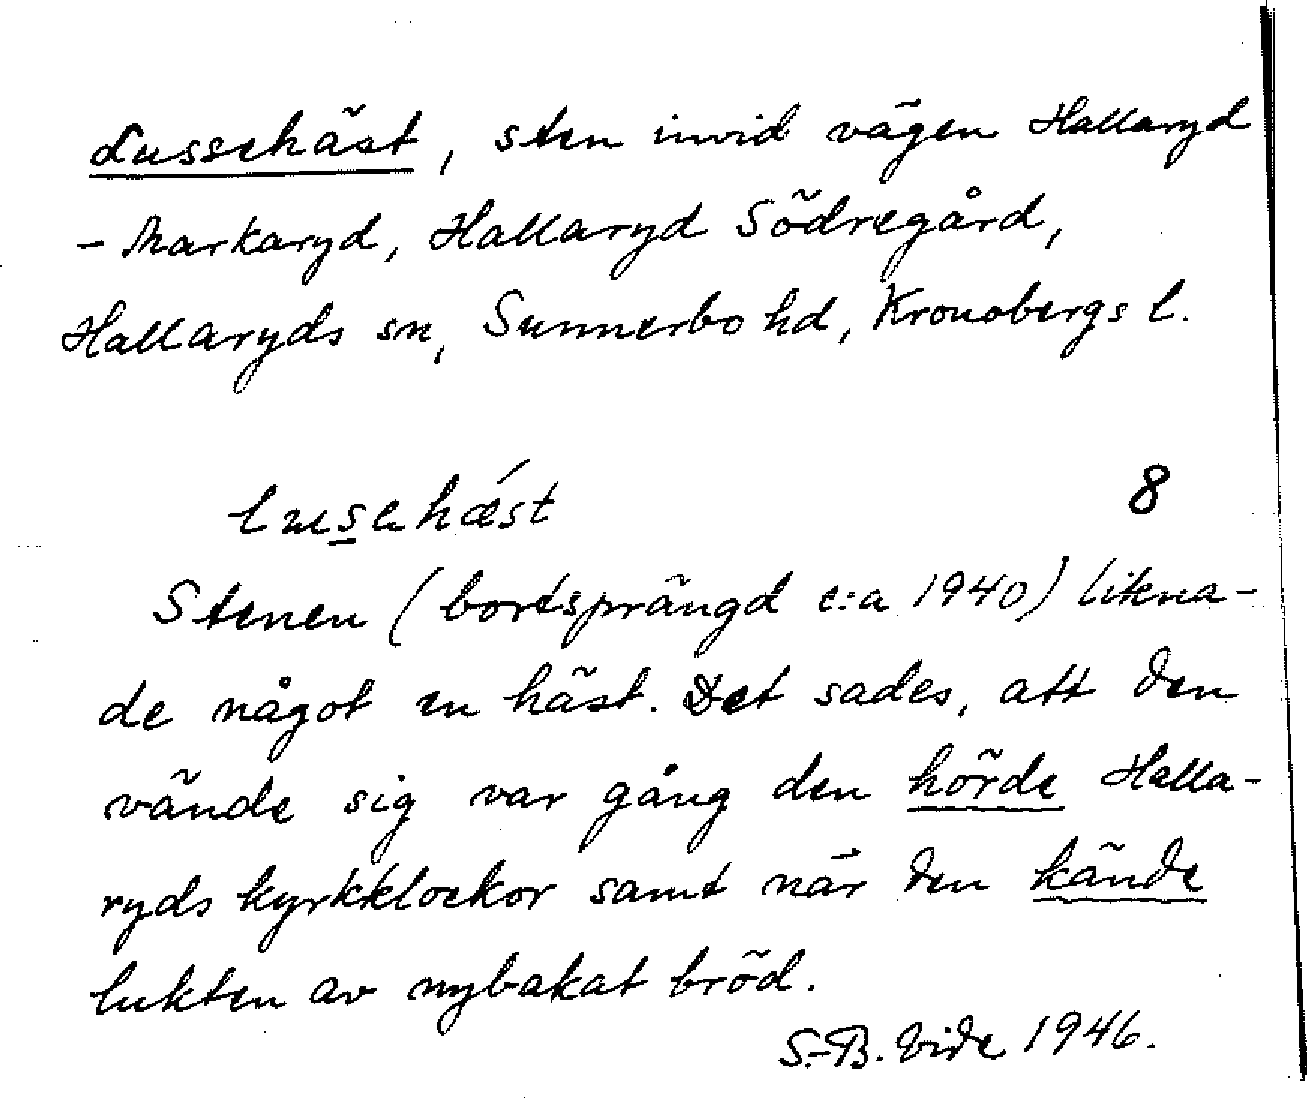 Lussehäst, sten invid vägen Hallaryd
- Markaryd, Hallaryd Södregård,
Hallaryds sn, Sunnerbo hd, Kronobergs l.
lusehæ´st 8
Stenen (bortsprängd c:a 1940) likna-
de något en häst. Det sades, att den
vände sig var gång den hörde Halla-
ryds kyrkklockor samt när den kände
lukten av nybakat bröd.
S.-B. Vide 1946.